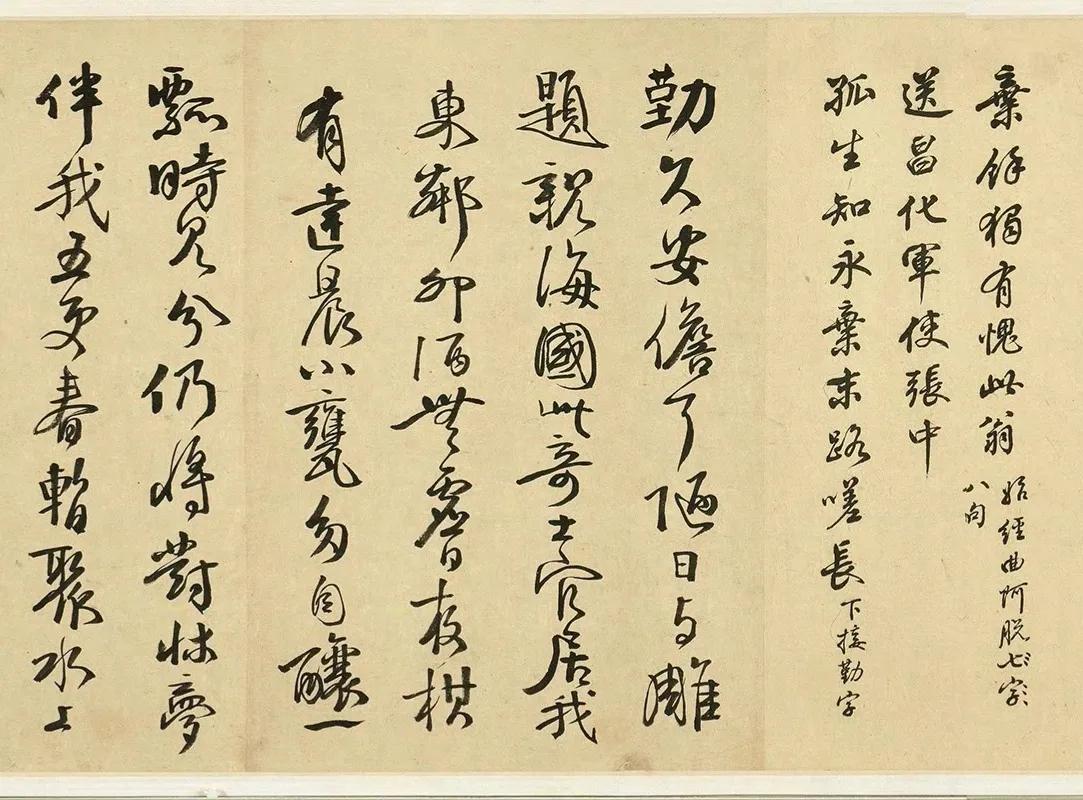 棄餘獨有愧此翁 始經曲阿脫七字
八句
送昌化軍使張中
孤生知永棄末路嗟長 下接勤字
勤久安儋耳陋日与雕
題親海國此奇士官居我
東鄰卯酒無虛日夜棋
有達晨小甕多自釀一
瓢時見分仍將對牀夢
伴我五更春暫聚水上